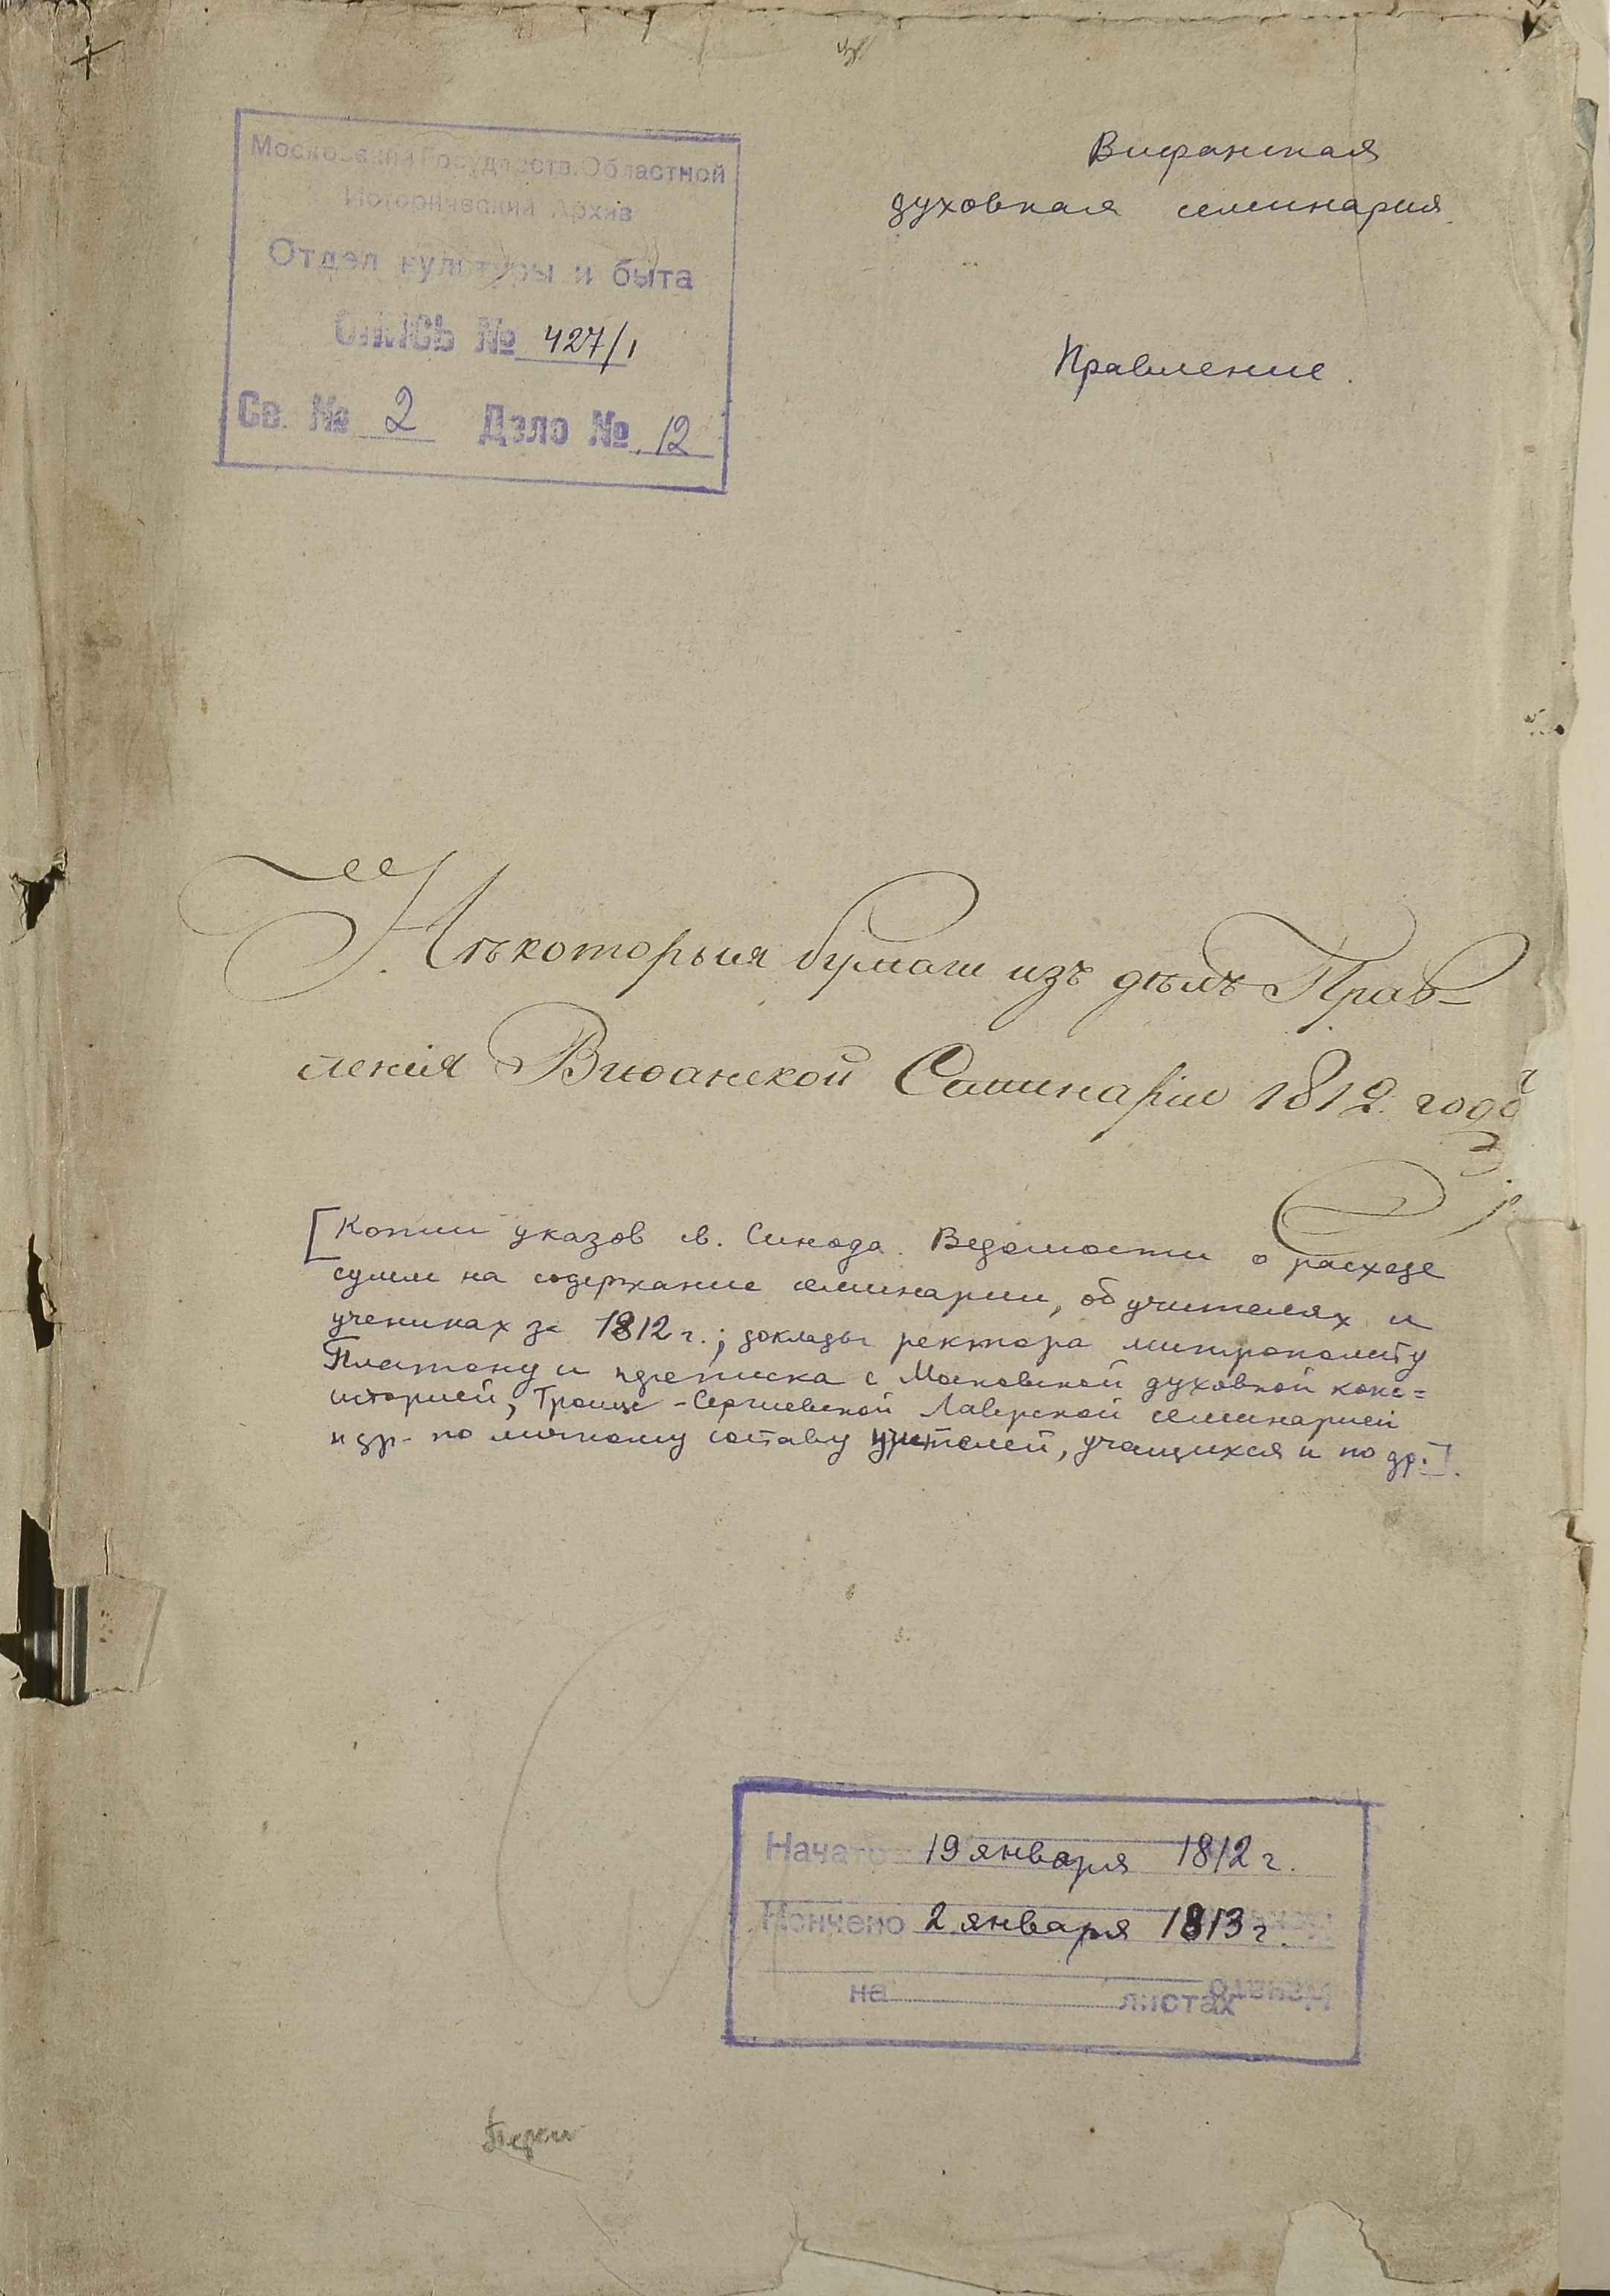 Московский Государств. Областной
Исторический Архив
Отдел культуры и быта
ОПИСЬ № 427/1
Св. № 2 Дело № 12
Вифанская
духовная семинария
Правление.
Нѣкоторыя бумаги изъ дѣлъ Прав-
ленія Виѳанской Семинаріи 1812. года
[Копии указов св. Синода. Ведомости о расходе
сумм на содержание семинарии, об учителях и
учениках за 1812 г.; доклады ректора митрополиту
Платону и переписка с Московской духовной конс=
историей, Троице-Сергиевской Лаврской семинарией
и др. по личному составу учителей, учащихся и по др.].
Начато 19 января 1812 г.
Кончено 2 января 1813 г.
на листах